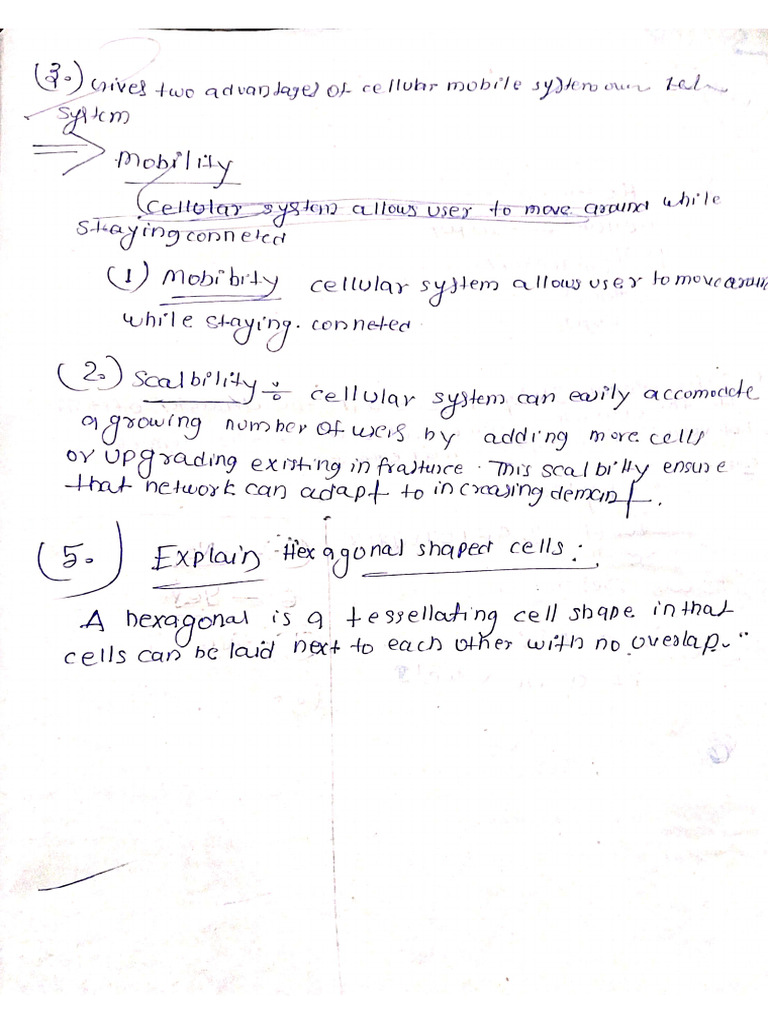 (3.) Gives two advantages of cellular mobile system
system
Mobility
cellular system allows user to move around while
staying conneted
(1) Mobibity cellular system allows user to move aroun
while staying. conneted.
(2.) Scalbility ÷ cellular system can easily accomodate
a growing number of users by adding more cells
or upgrading existing infrasture. This scalbility ensure
that network can adapt to increasing demand.
(5.) Explain Hexagonal shaped cells:
A hexagonal is a tessellating cell shape in that
cells can be laid next to each other with no overlap."